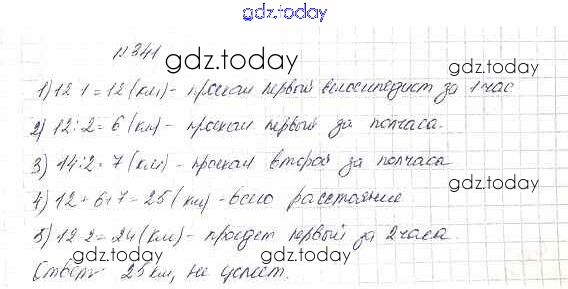 gdz.today
№341
gdz.today
gdz.today
1) 12·1=12 (км) - проехал первый велосипедист за 1 час
2) 12:2=6 (км) - проехал первый за полчаса.
3) 14:2=7 (км) - проехал второй за полчаса
gdz.today
4) 12+6+7=25 (км) - всего расстояние
5) 12·2=24 (км) - проедет первый за 2 часа.
gdz.today
gdz.today
Ответ: 25 км, не успеет.